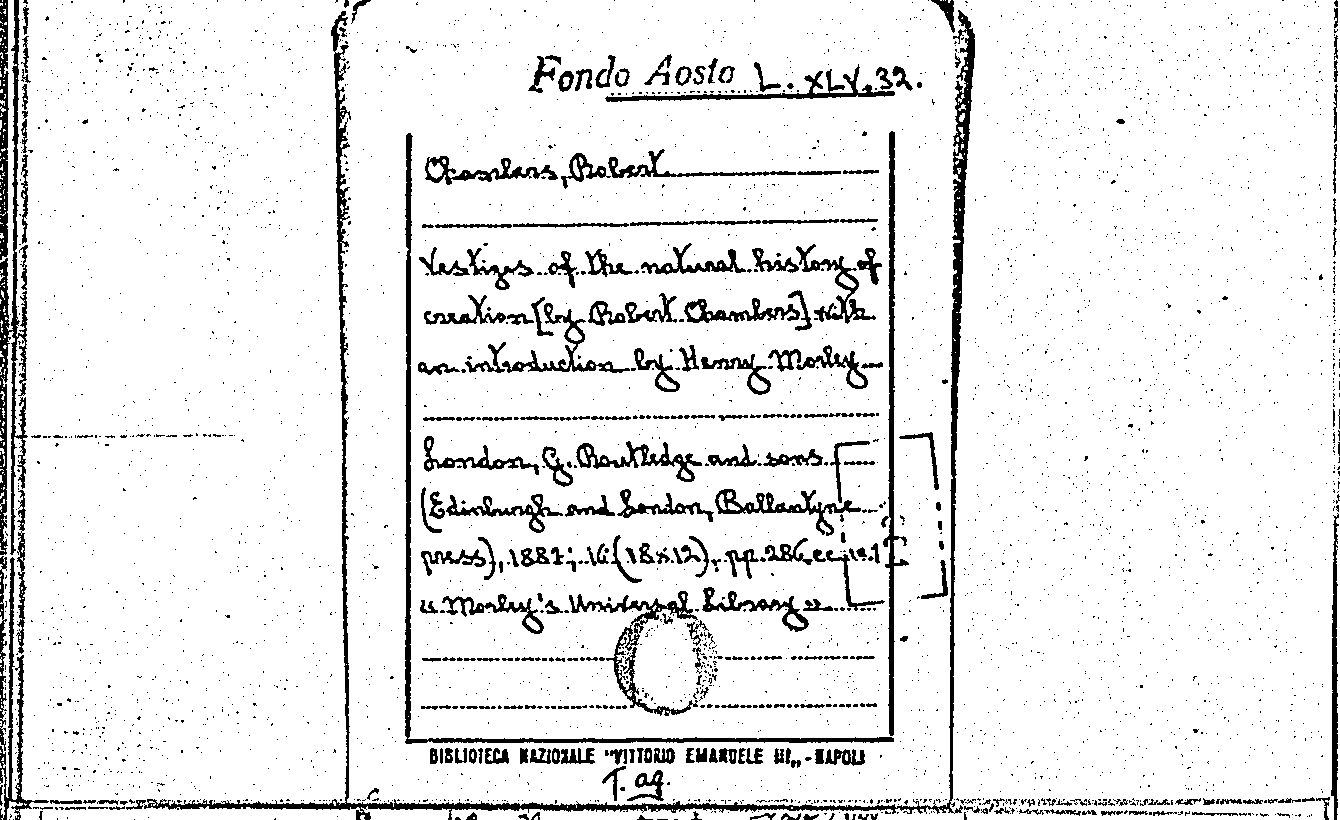 Fondo Aosta L. XLV. 32.
Chambers, Robert
Vestiges of the natural history of
creation [by Robert Chambers] with
an introduction by Henry Morley
London, G. Routledge and sons
(Edinburgh and London, Ballantyne
press), 1887; 16 (18x12), pp. 286
« Morley's Universal Library »
BIBLIOTECA NAZIONALE "VITTORIO EMANUELE III„ - NAPOLI
T. ag.